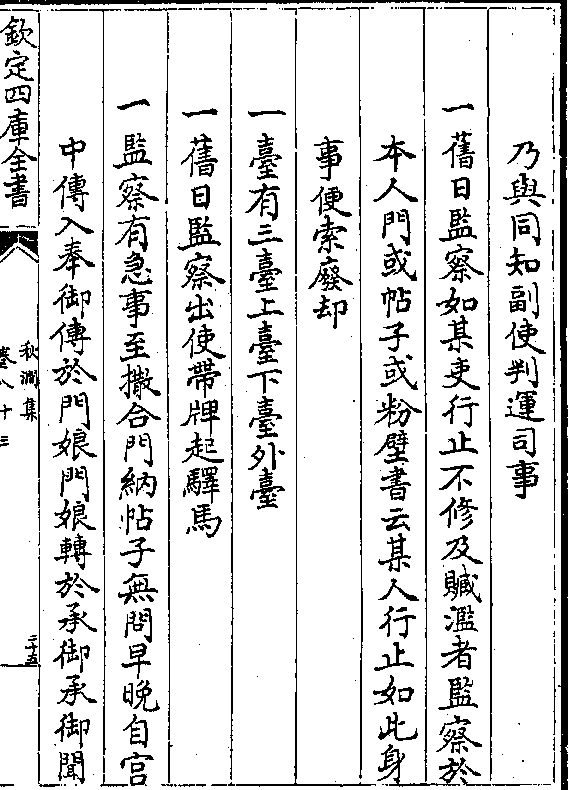 乃與同知副使判運司事
一舊日監察如某吏行止不修及贓濫者監察於
本人門或帖子或粉壁書云某人行止如此身
事便索廢却
一臺有三臺上臺下臺外臺
一舊日監察出使帶牌起驛馬
一監察有急事至撒合門納帖子無問早晚自宫
中傳入奉御傳於門娘門娘轉於承御承御聞
欽定四庫全書
秋澗集
卷八十三
二十五